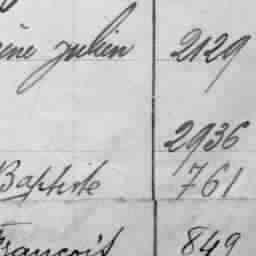 ine Julien 2129
2936
Baptiste 761
François 849